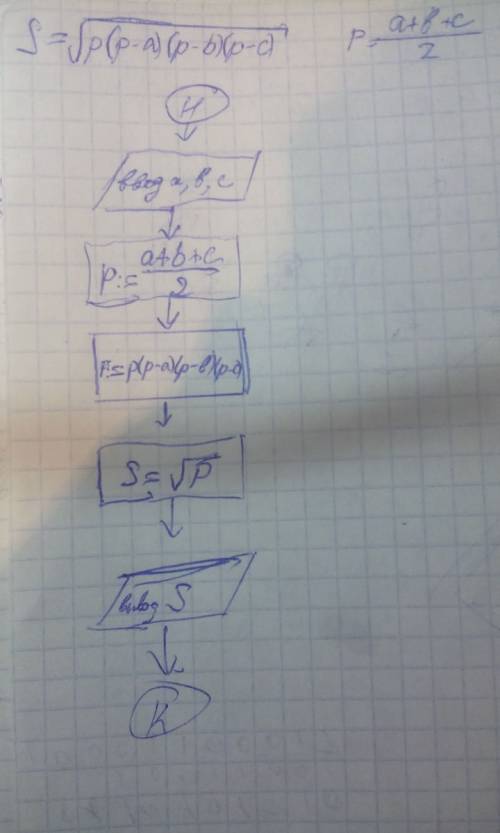 S = √p(p-a)(p-b)(p-c) p = a+b+c / 2
Н
ввод a, b, c
p := a+b+c / 2
P := p(p-a)(p-b)(p-c)
S = √P
вывод S
К